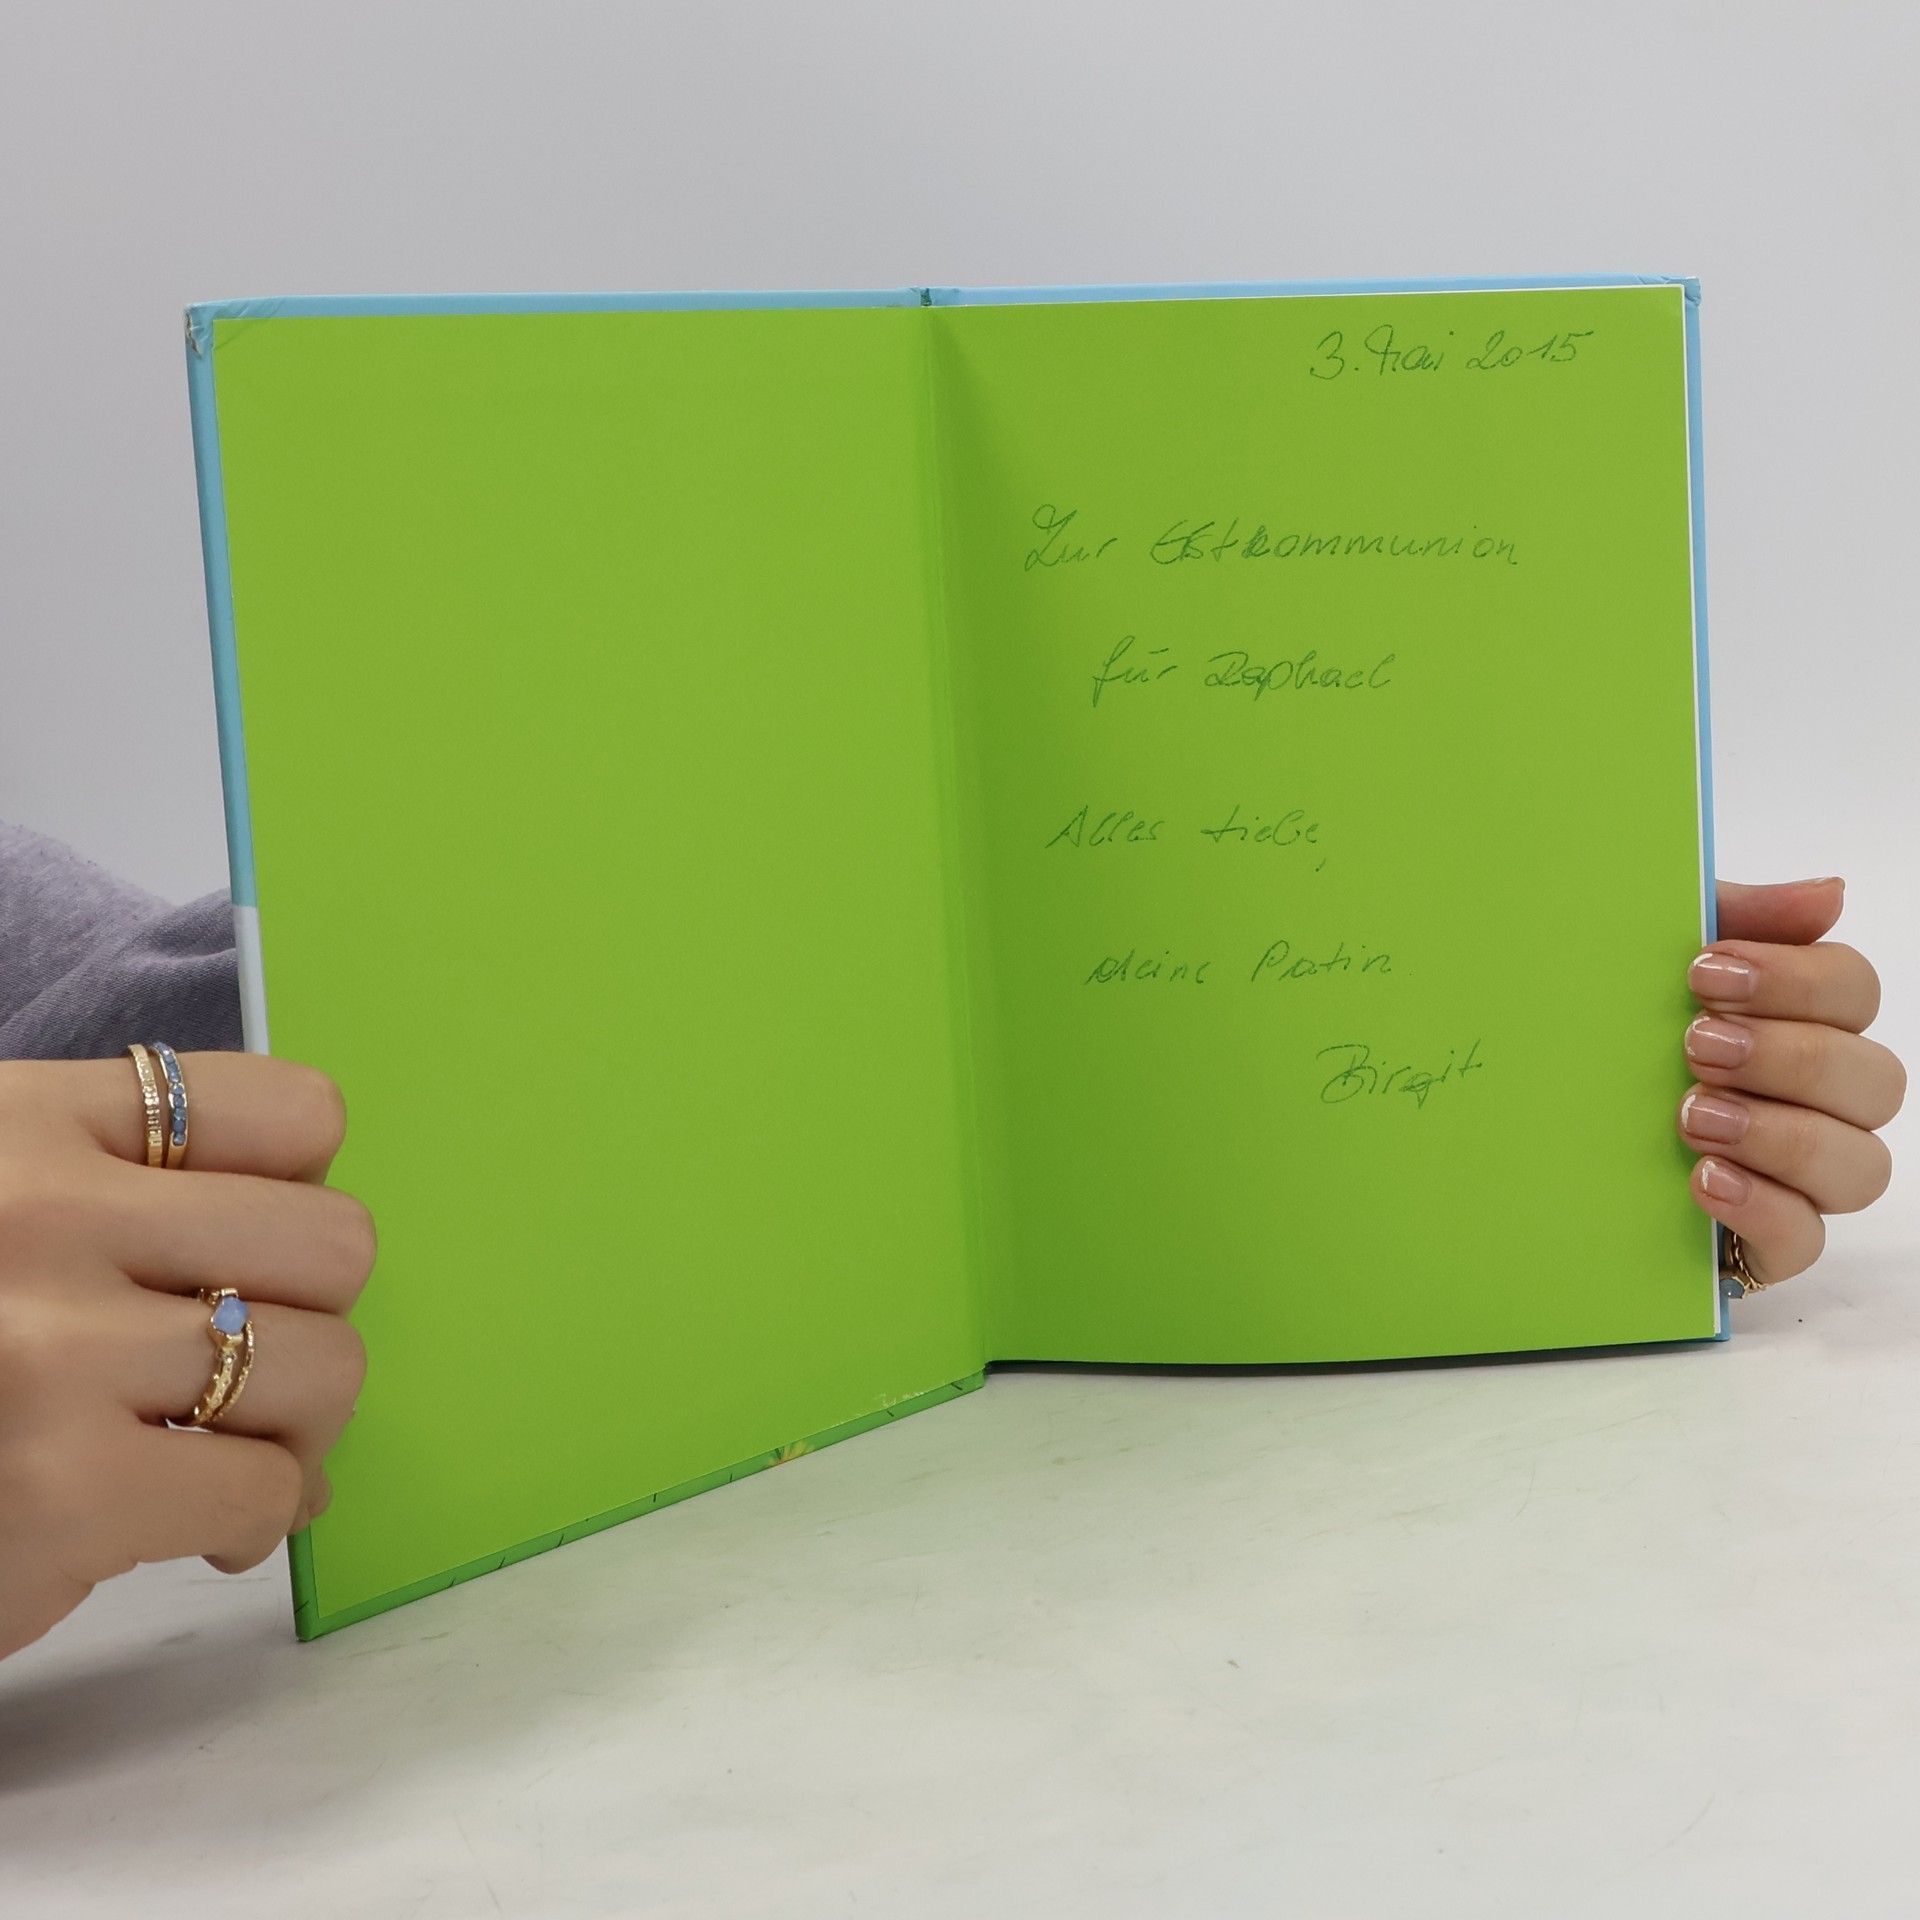 3. Mai 2015
Zur Erstkommunion
für Raphael
Alles Liebe,
deine Patin
Birgit